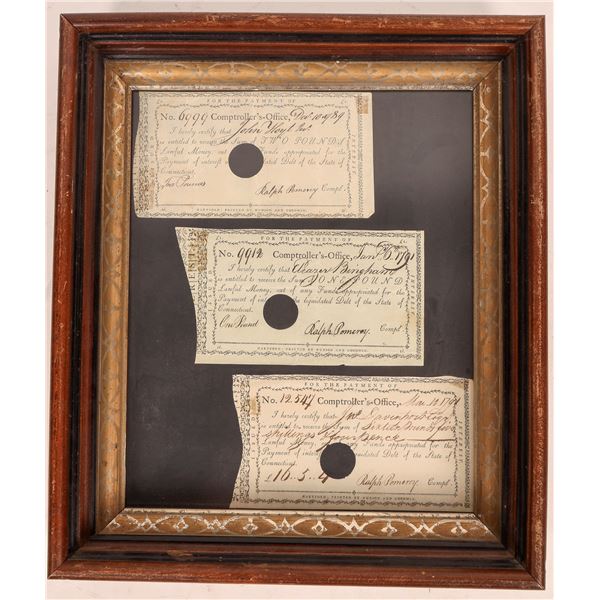 FOR THE PAYMENT OF
No. 6999 Comptroller's-Office, Decr 10 1789
I hereby certify that John Hoyt Junr
is entitled to receive the Sum of TWO POUNDS
Lawful Money, out of any Funds appropriated for the
Payment of interest on the liquidated Debt of the State of
Connecticut.
Two Pounds
Ralph Pomeroy Compt.
HARTFORD: PRINTED BY HUDSON AND GOODWIN.
FOR THE PAYMENT OF
No. 9912 Comptroller's-Office, Jany 6, 1791
I hereby certify that Eleazer Bingham
is entitled to receive the Sum of ONE POUND
Lawful Money, out of any Funds appropriated for the
Payment of interest on the liquidated Debt of the State of
Connecticut.
One Pound
Ralph Pomeroy. Compt.
HARTFORD: PRINTED BY HUDSON AND GOODWIN.
FOR THE PAYMENT OF
No. 12.547 Comptroller's-Office, 1791
I hereby certify that Jno Davenport
is entitled to receive the Sum of Sixteen Pounds five
shillings & four pence
Lawful Money, out of any Funds appropriated for the
Payment of interest on the liquidated Debt of the State of
Connecticut.
£16..5..4
Ralph Pomeroy Compt.
HARTFORD: PRINTED BY HUDSON AND GOODWIN.